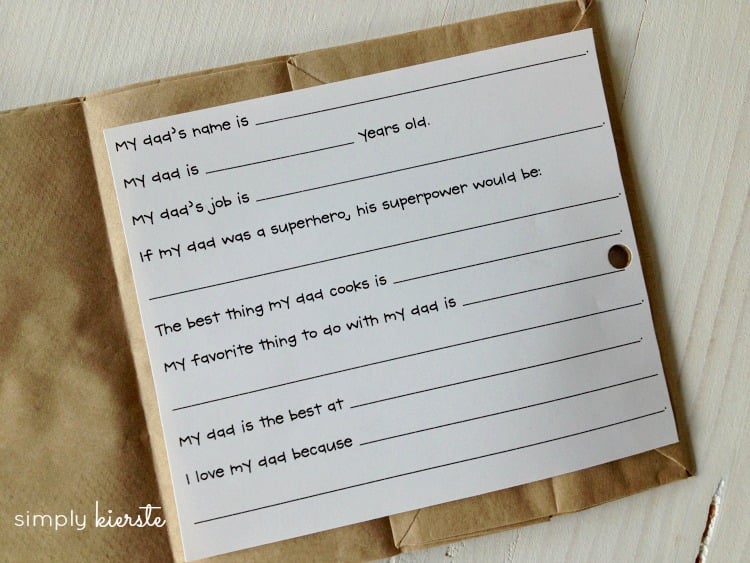 My dad's name is ____________________.
My dad is ____________________ years old.
My dad's job is ____________________.
If my dad was a superhero, his superpower would be:
____________________.
The best thing my dad cooks is ____________________.
My favorite thing to do with my dad is ____________________
____________________.
My dad is the best at ____________________.
I love my dad because ____________________
____________________.
simply kierste